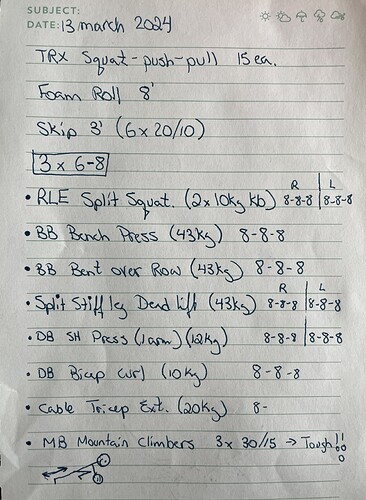 SUBJECT:
DATE: 13 march 2024
TRX Squat-push-pull 15 ea.
Foam Roll 8'
Skip 3' (6 x 20/10)
3 x 6-8
R | L
• RLE Split Squat. (2x10kg kb) 8-8-8 | 8-8-8
• BB Bench Press (43kg) 8-8-8
• BB Bent over Row (43kg) 8-8-8
R | L
• Split Stiff leg Dead lift (43kg) 8-8-8 | 8-8-8
• DB SH Press (1 arm) (12kg) 8-8-8 | 8-8-8
• DB Bicep curl (10kg) 8-8-8
• Cable Tricep Ext. (20kg) 8-
• MB Mountain Climbers 3 x 30//15 → Tough!!!